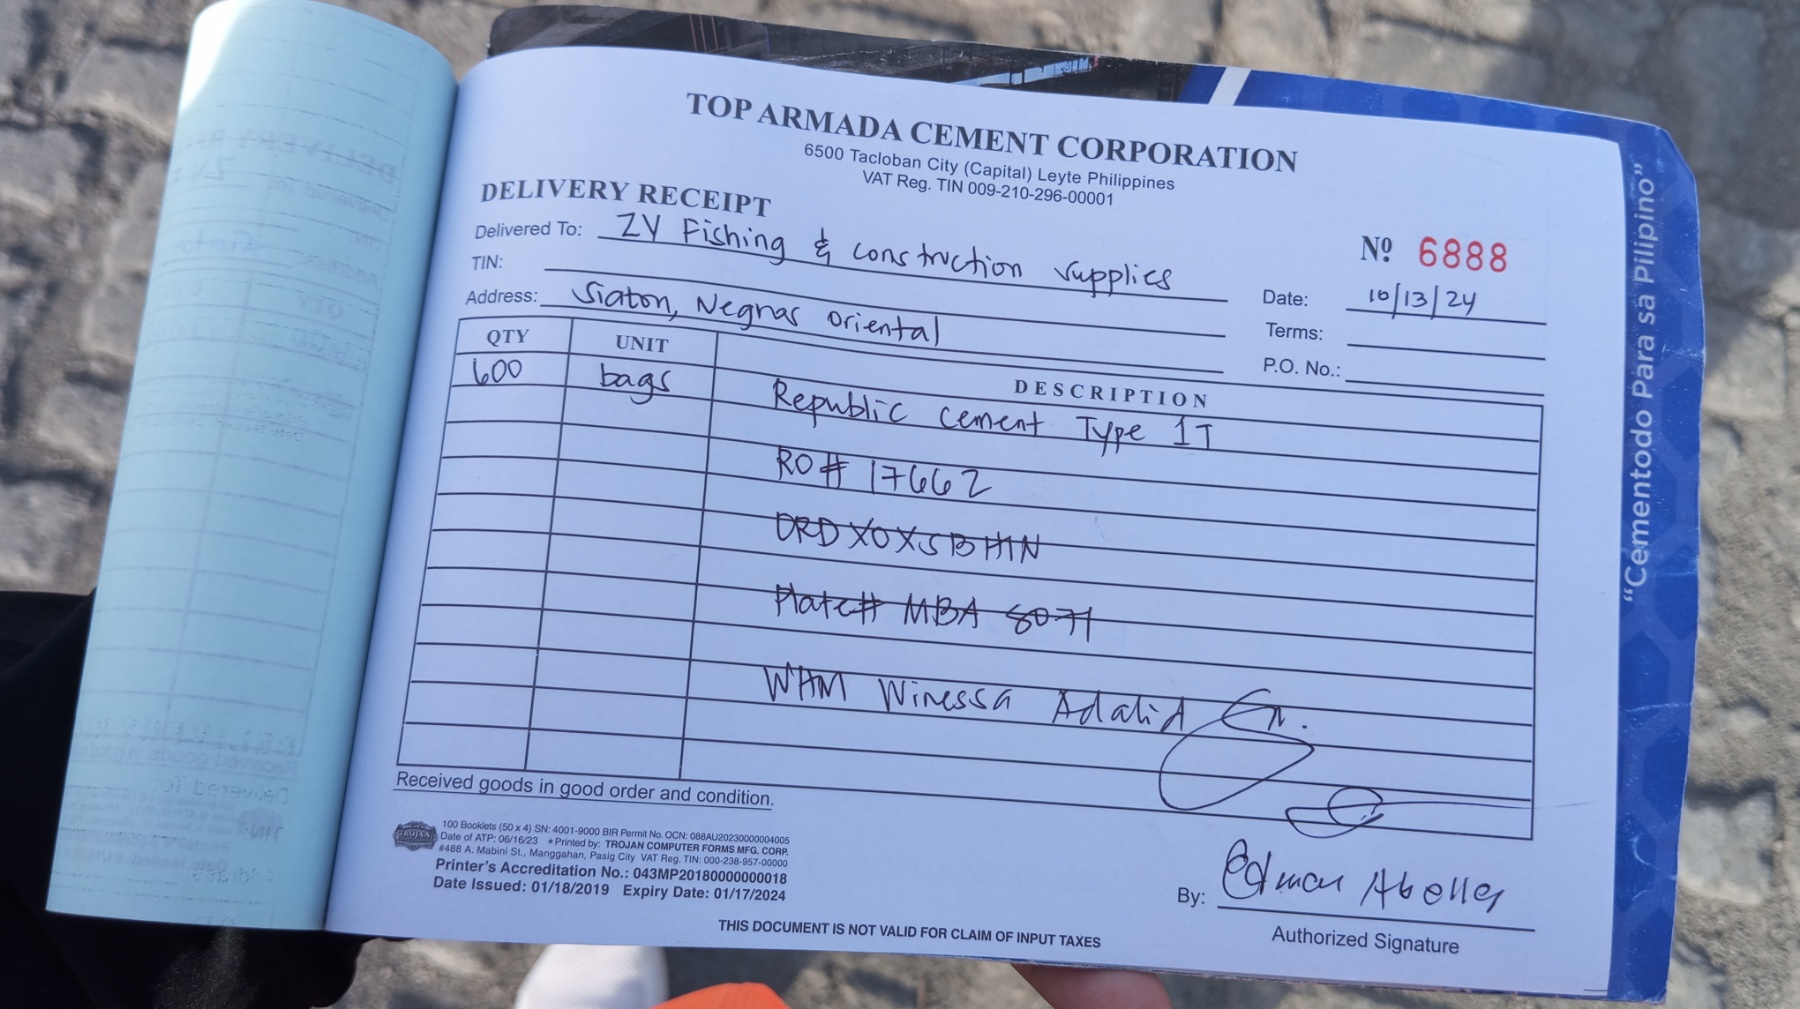 TOP ARMADA CEMENT CORPORATION
6500 Tacloban City (Capital) Leyte Philippines
VAT Reg. TIN 009-210-296-00001
DELIVERY RECEIPT
Nº 6888
Delivered To: ZY Fishing & construction supplies
TIN:
Address: Siaton, Negros oriental
Date: 10/13/24
Terms:
P.O. No.:
QTY UNIT DESCRIPTION
600 bags Republic cement Type 1T
RO# 17662
ORD XOXSBHIN
Plate# MBA 8071
WHM Winessa Adalid
Received goods in good order and condition.
TROJAN
100 Booklets (50 x 4) SN: 4001-9000 BIR Permit No. OCN: 088AU20230000004005
Date of ATP: 06/16/23 ★Printed by: TROJAN COMPUTER FORMS MFG. CORP.
#488 A. Mabini St., Manggahan, Pasig City VAT Reg. TIN: 000-238-957-00000
Printer's Accreditation No.: 043MP20180000000018
Date Issued: 01/18/2019 Expiry Date: 01/17/2024
By: Edmar Abella
Authorized Signature
THIS DOCUMENT IS NOT VALID FOR CLAIM OF INPUT TAXES
"Cementodo Para sa Pilipino"